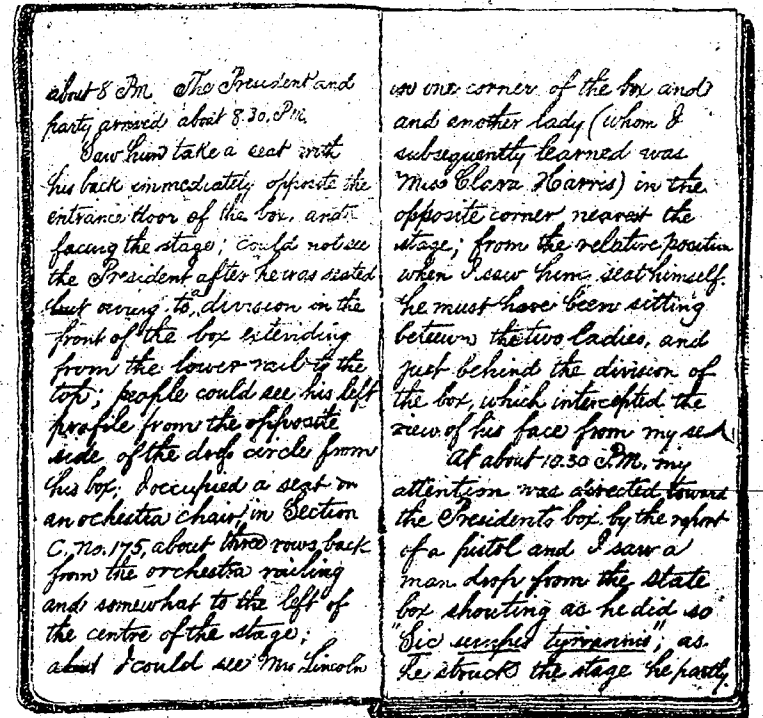 about 8 P.M. The President and
party arrived about 8.30. P.M.
Saw him take a seat with
his back immediately opposite the
entrance door of the box, and
facing the stage; could not see
the President after he was seated
but owing to a division in the
front of the box extending
from the lower rail to the
top; people could see his left
profile from the opposite
side of the dress circle from
his box; I occupied a seat in
an ochestra chair, in Section
C. No. 175, about three rows back
from the orchestra railing
and somewhat to the left of
the centre of the stage;
I could see Mrs Lincoln
in one corner of the box and
and another lady (whom I
subsequently learned was
Miss Clara Harris) in the
opposite corner nearest the
stage; from the relative position
when I saw him seat himself.
he must have been sitting
between the two ladies, and
just behind the division of
the box, which intercepted the
view of his face from my seat
At about 10.30 P.M. my
attention was directed toward
the Presidents box by the report
of a pistol and I saw a
man drop from the state
box shouting as he did so
"Sic semper tyrannis"; as
he struck the stage he partly